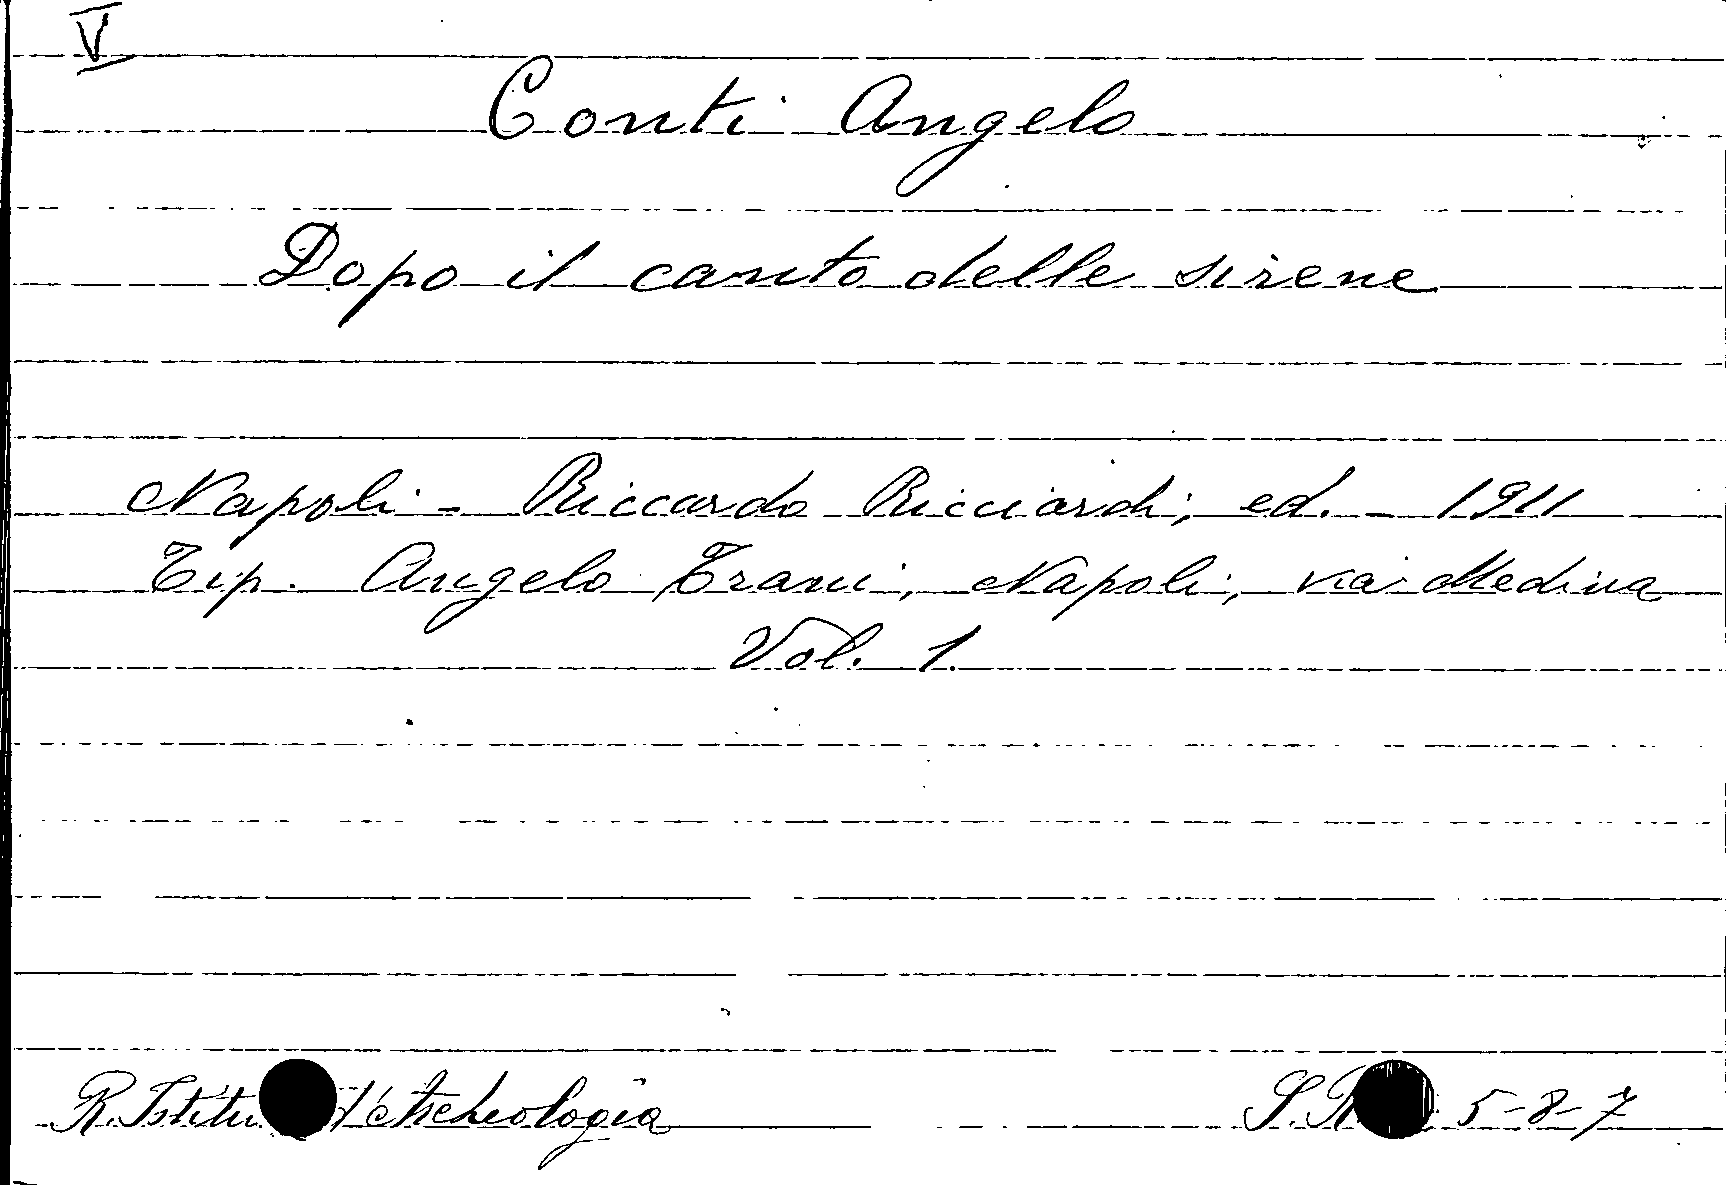 V
Conti Angelo
Dopo il canto delle sirene
Napoli - Riccardo Ricciardi, ed. - 1911
Tip. Angelo Trani, Napoli, via Medina
Vol. 1.
R. Istitu d'Archeologia S. 5-8-7